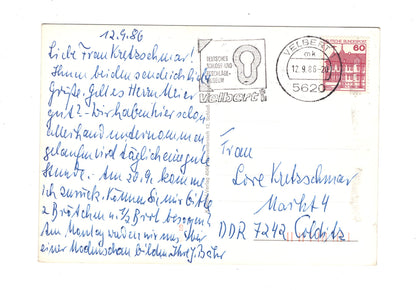 12.9.86
Liebe Frau Kretzschmar!
Ihnen beiden sende ich liebe
Grüße. Geht es Herrn Meier
gut? Wir haben hier schon
allerhand unternommen
gelaufen wird täglich einige
Stunden. Am 20.9. komme
ich zurück. Können Sie mir bitte
2 Brötchen u. 1/2 Brot besorgen
Am Montag waren wir zur
einer Modenschau Ihre J. Bähr
DEUTSCHES
SCHLOSS- UND
BESCHLÄGE-
MUSEUM
Velbert
VELBERT
mk
12.9.86-20
5620
DEUTSCHE BUNDESPOST
60
Frau
Lore Kretzschmar
Markt 4
DDR 7242 Colditz